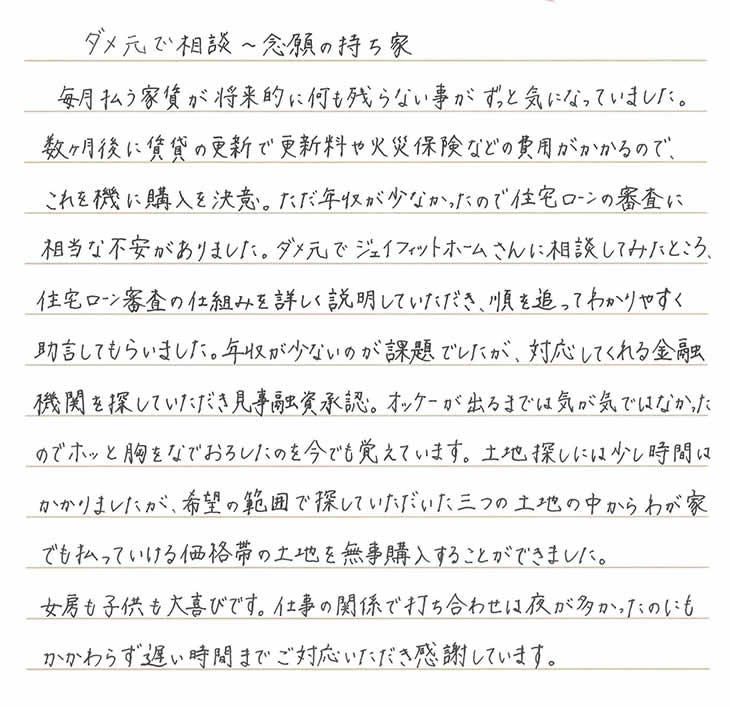 ダメ元で相談～念願の持ち家
毎月払う家賃が将来的に何も残らない事がずっと気になっていました。
数ヶ月後に賃貸の更新で更新料や火災保険などの費用がかかるので、
これを機に購入を決意。ただ年収が少なかったので住宅ローンの審査に
相当な不安がありました。ダメ元でジェイフィットホームさんに相談してみたところ、
住宅ローン審査の仕組みを詳しく説明していただき、順を追ってわかりやすく
助言してもらいました。年収が少ないのが課題でしたが、対応してくれる金融
機関を探していただき見事融資承認。オッケーが出るまでは気が気ではなかった
のでホッと胸をなでおろしたのを今でも覚えています。土地探しには少し時間は
かかりましたが、希望の範囲で探していただいた三つの土地の中からわが家
でも払っていける価格帯の土地を無事購入することができました。
女房も子供も大喜びです。仕事の関係で打ち合わせは夜が多かったのにも
かかわらず遅い時間までご対応いただき感謝しています。